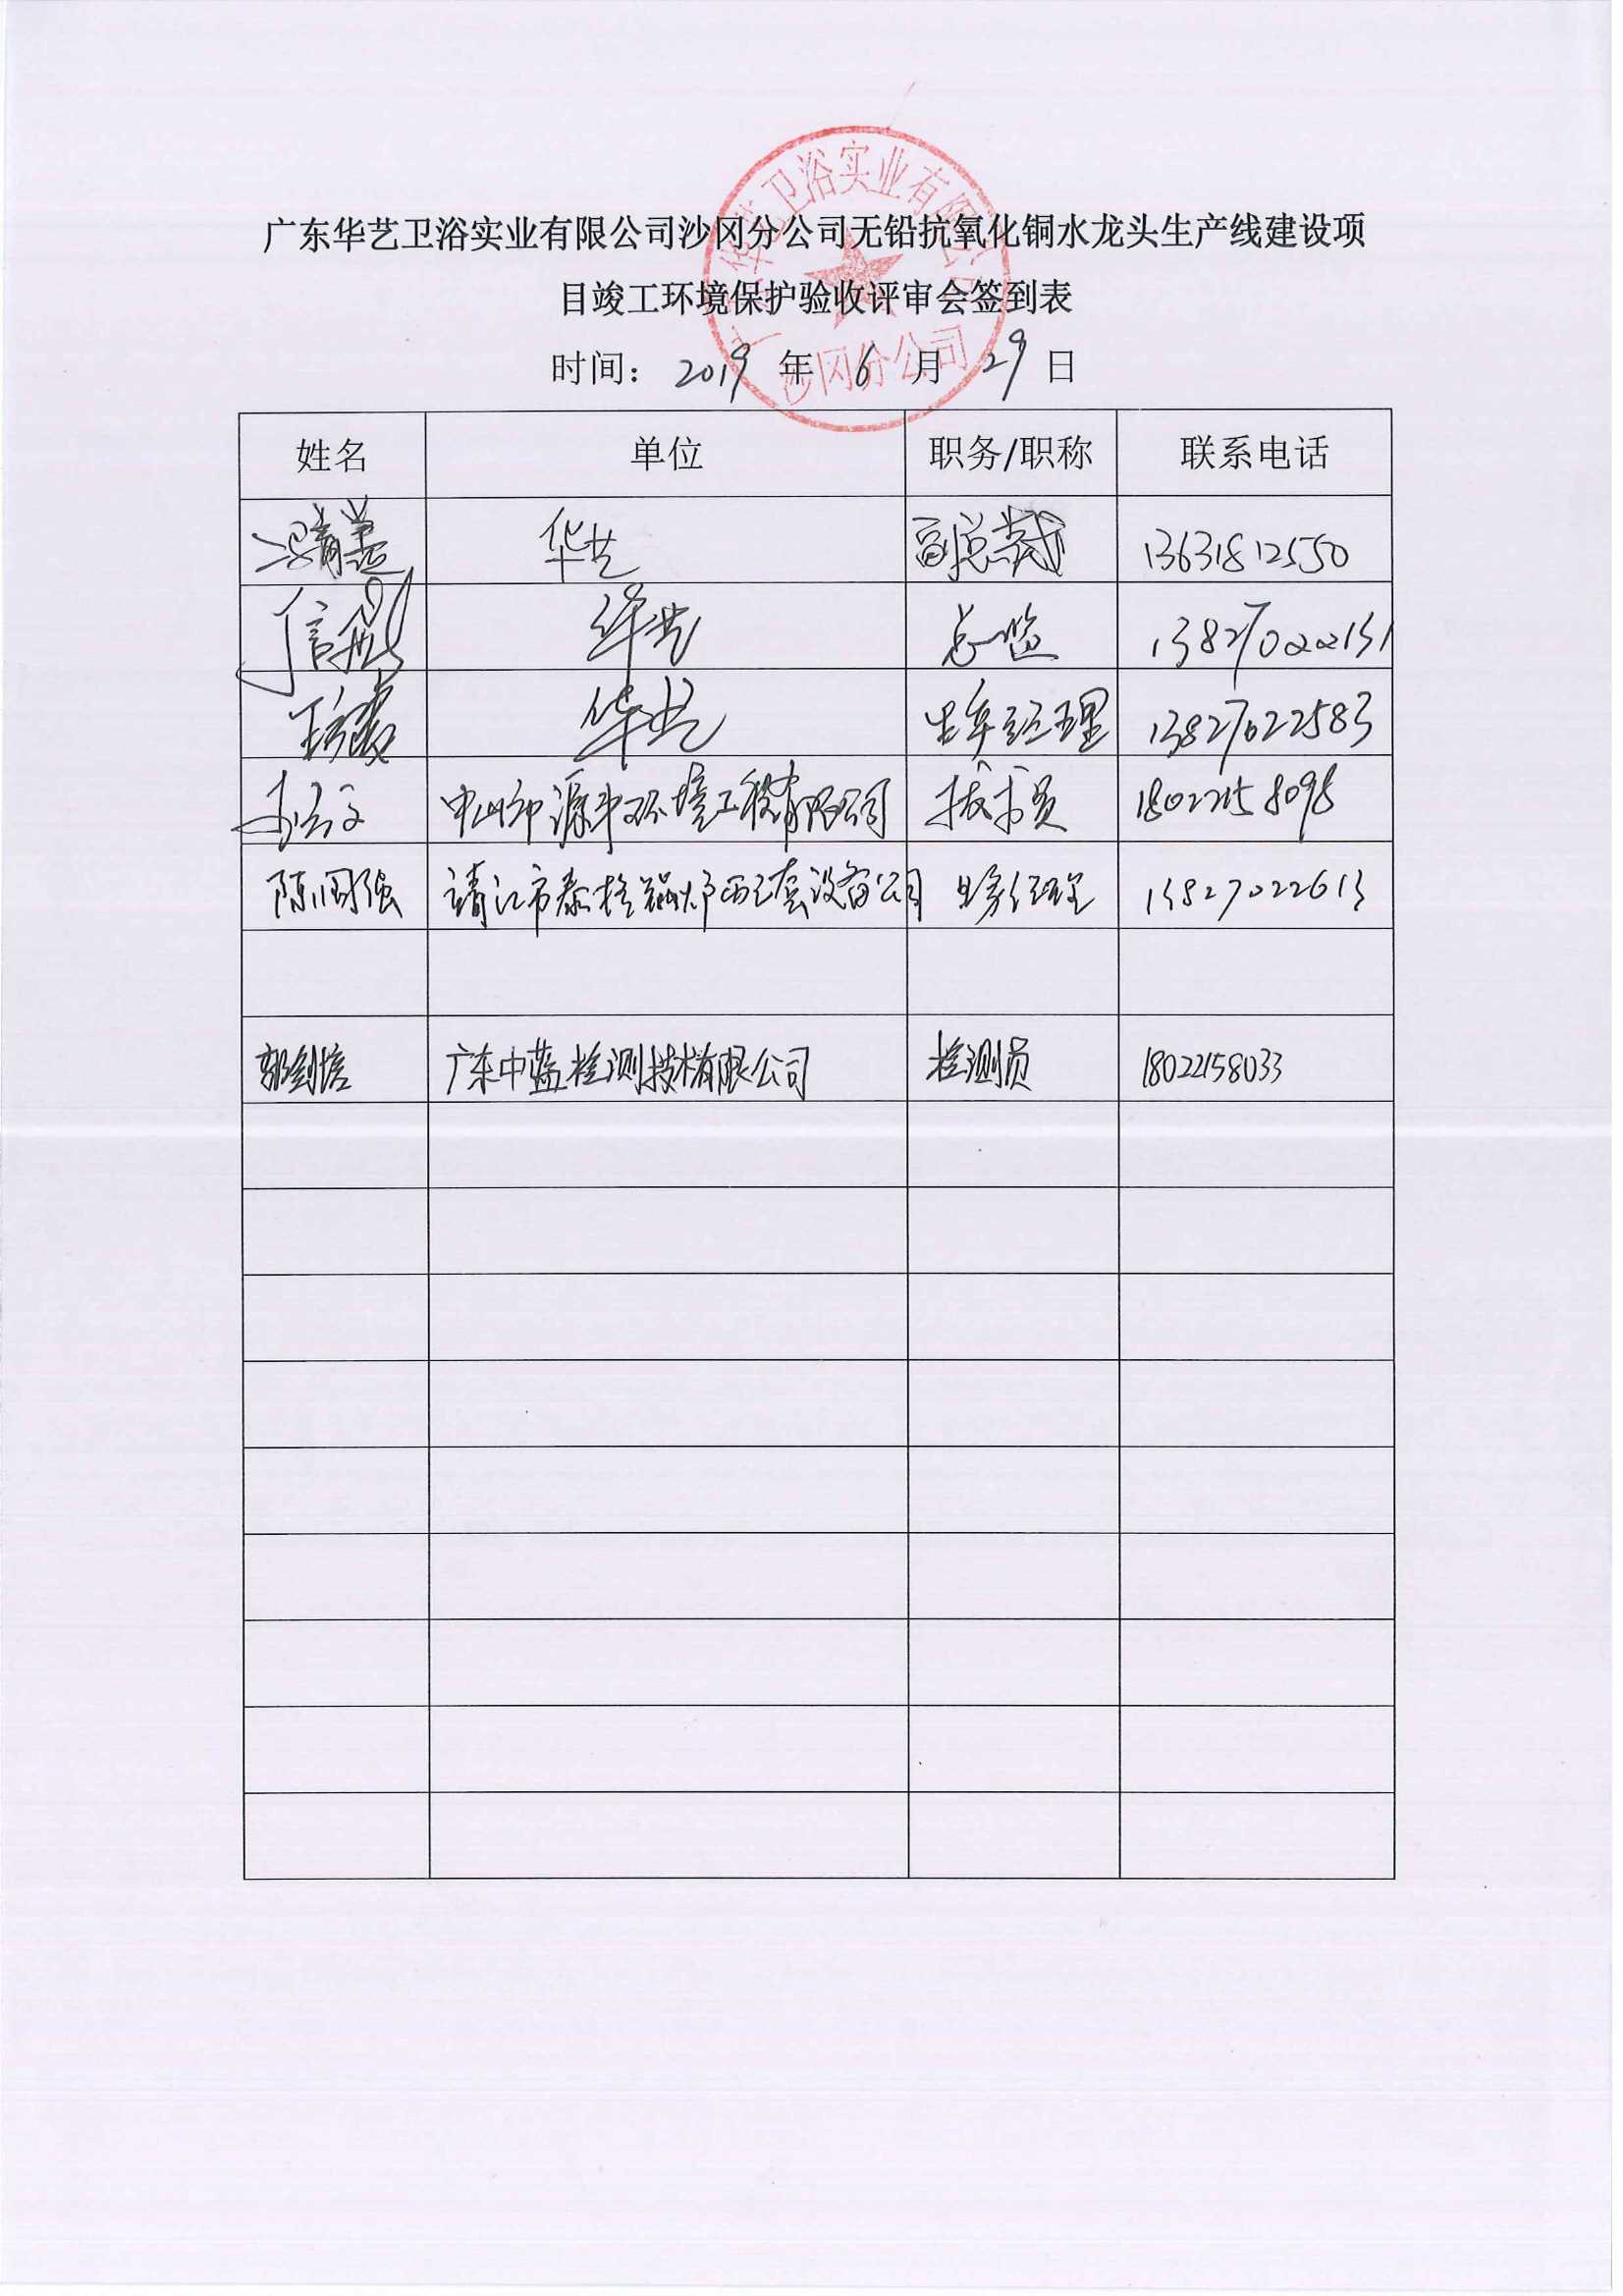 广东华艺卫浴实业有限公司沙冈分公司无铅抗氧化铜水龙头生产线建设项
目竣工环境保护验收评审会签到表
时间： 2019 年 6 月 29 日
卫浴实业有限公司
沙冈分公司
姓名 单位 职务/职称 联系电话
华艺 副总裁 13631812550
华艺 总监 13827022131
华艺 经理 13827622583
中山市源丰环境工程有限公司 技术员 18022158098
陈国强 靖江市泰格 设备公司 业务经理 13827022613
郭剑 广东中蓝检测技术有限公司 检测员 18022158033